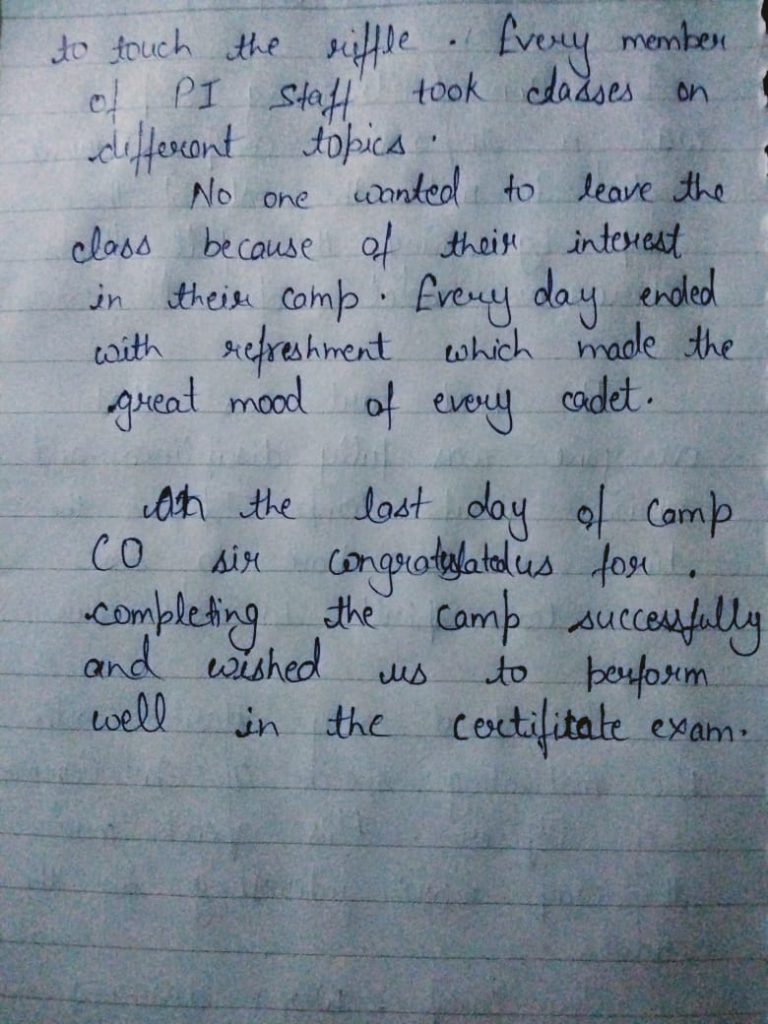 to touch the riffle. Every member
of PI Staff took classes on
different topics.
No one wanted to leave the
class because of their interest
in their camp. Every day ended
with refreshment which made the
great mood of every cadet.
On the last day of camp
CO sir congratulated us for.
completing the camp successfully
and wished us to perform
well in the certifitate exam.